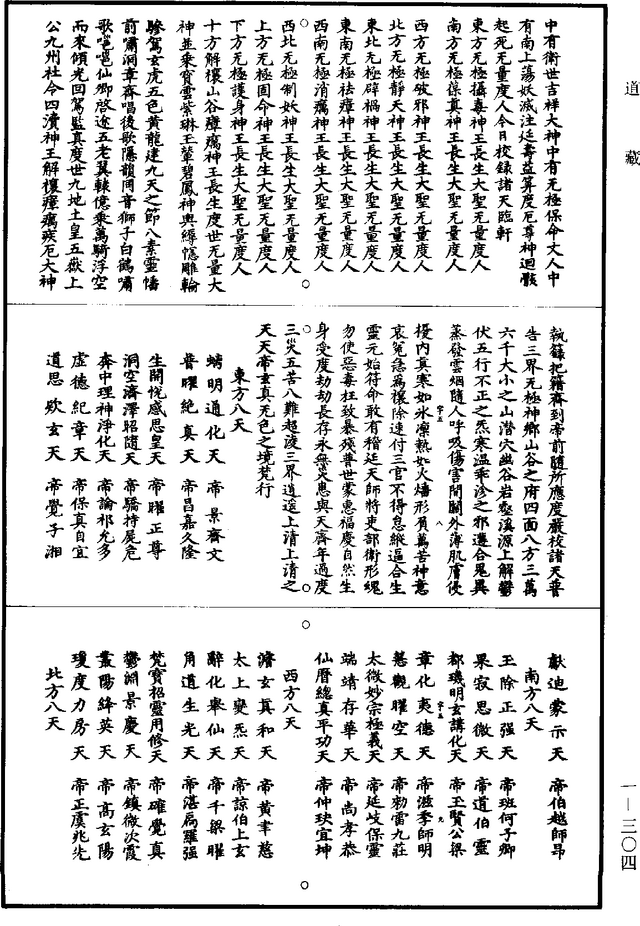 道藏
中有衛世吉祥大神中有无極保命丈人中
有南上蕩妖滅注延壽益算度厄尊神迴骸
起死无量度人今日校錄諸天臨軒
東方无極攝毒神王長生大聖无量度人
南方无極葆真神王長生大聖无量度人
西方无極破邪神王長生大聖无量度人
北方无極靜天神王長生大聖无量度人
東北无極辟禍神王長生大聖无量度人
東南无極祛瘴神王長生大聖无量度人
西南无極消癘神王長生大聖无量度人
西北无極制妖神王長生大聖无量度人
上方无極固命神王長生大聖无量度人
下方无極護身神王長生大聖无量度人
十方解禳山谷瘴癘神王長生度世无量大
神並乘寶雲紫琳玉輦碧鳳神輿縟幰雕輪
驂駕玄虎五色黃龍建九天之節八素靈幡
前嘯洞章齊唱後歌隱韻同音獅子白鶴嘯
歌嗈嗈仙卿啓途五老翼轅億乘萬騎浮空
而來傾光回駕監真度世九地土皇五嶽上
公九州社令四瀆神王解禳瘴癘疾厄大神
執籙把籍齊到帝前隨所應度嚴校諸天普
告三界无極神鄉山谷之府四面八方三萬
六千大小之山潛穴幽谷岩壑溪源上解鬱
伏五行不正之炁寒溫乖沴之邪遷合鬼異
蒸發雲烟隨人呼吸傷害開闔外薄肌膚侵
擾內真寒如冰凜熱如火燔形質萬苦神意
哀冤急爲禳除速付三官不得怠縱逼合生
靈元始符命敢有稽延天師將吏部衛形魂
勿使惡毒枉致暴殘普世蒙惠福慶自然生
身受度劫劫長存永無災患與天齊年過度
三災五苦八難超淩三界逍遥上清上清之
天天帝玄真无色之境梵行
東方八天
蟎明通化天 帝景齋文
普曜絶真天 帝昌嘉久隆
生開悅感思皇天 帝曜正尊
洞空濟澤昭隨天 帝驕持屍危
奔中理神淨化天 帝論祁允多
虛德紀章天 帝保真自宜
道思欵玄天 帝覺子湘
獻迪蒙示天 帝伯越師昂
南方八天
玉除正强天 帝班何子卿
果寂思微天 帝道伯靈
都璣明玄講化天 帝王賢公梁
章化夷德天 帝滋季師明
慧觀曜空天 帝勑雷九莊
太微妙宗極義天 帝延岐保靈
端靖存華天 帝尚孝恭
仙曆總真平功天 帝仲玦宜坤
西方八天
澹玄真和天 帝黄聿慈
太上變炁天 帝諒伯上玄
辭化舉仙天 帝千梁曜
角道生光天 帝湛扃羅强
梵寶招靈用修天 帝確覺真
鬱淵景慶天 帝鎮微次霞
叢陽絳英天 帝高玄陽
瓊度力房天 帝正虞兆先
北方八天
一—三〇四